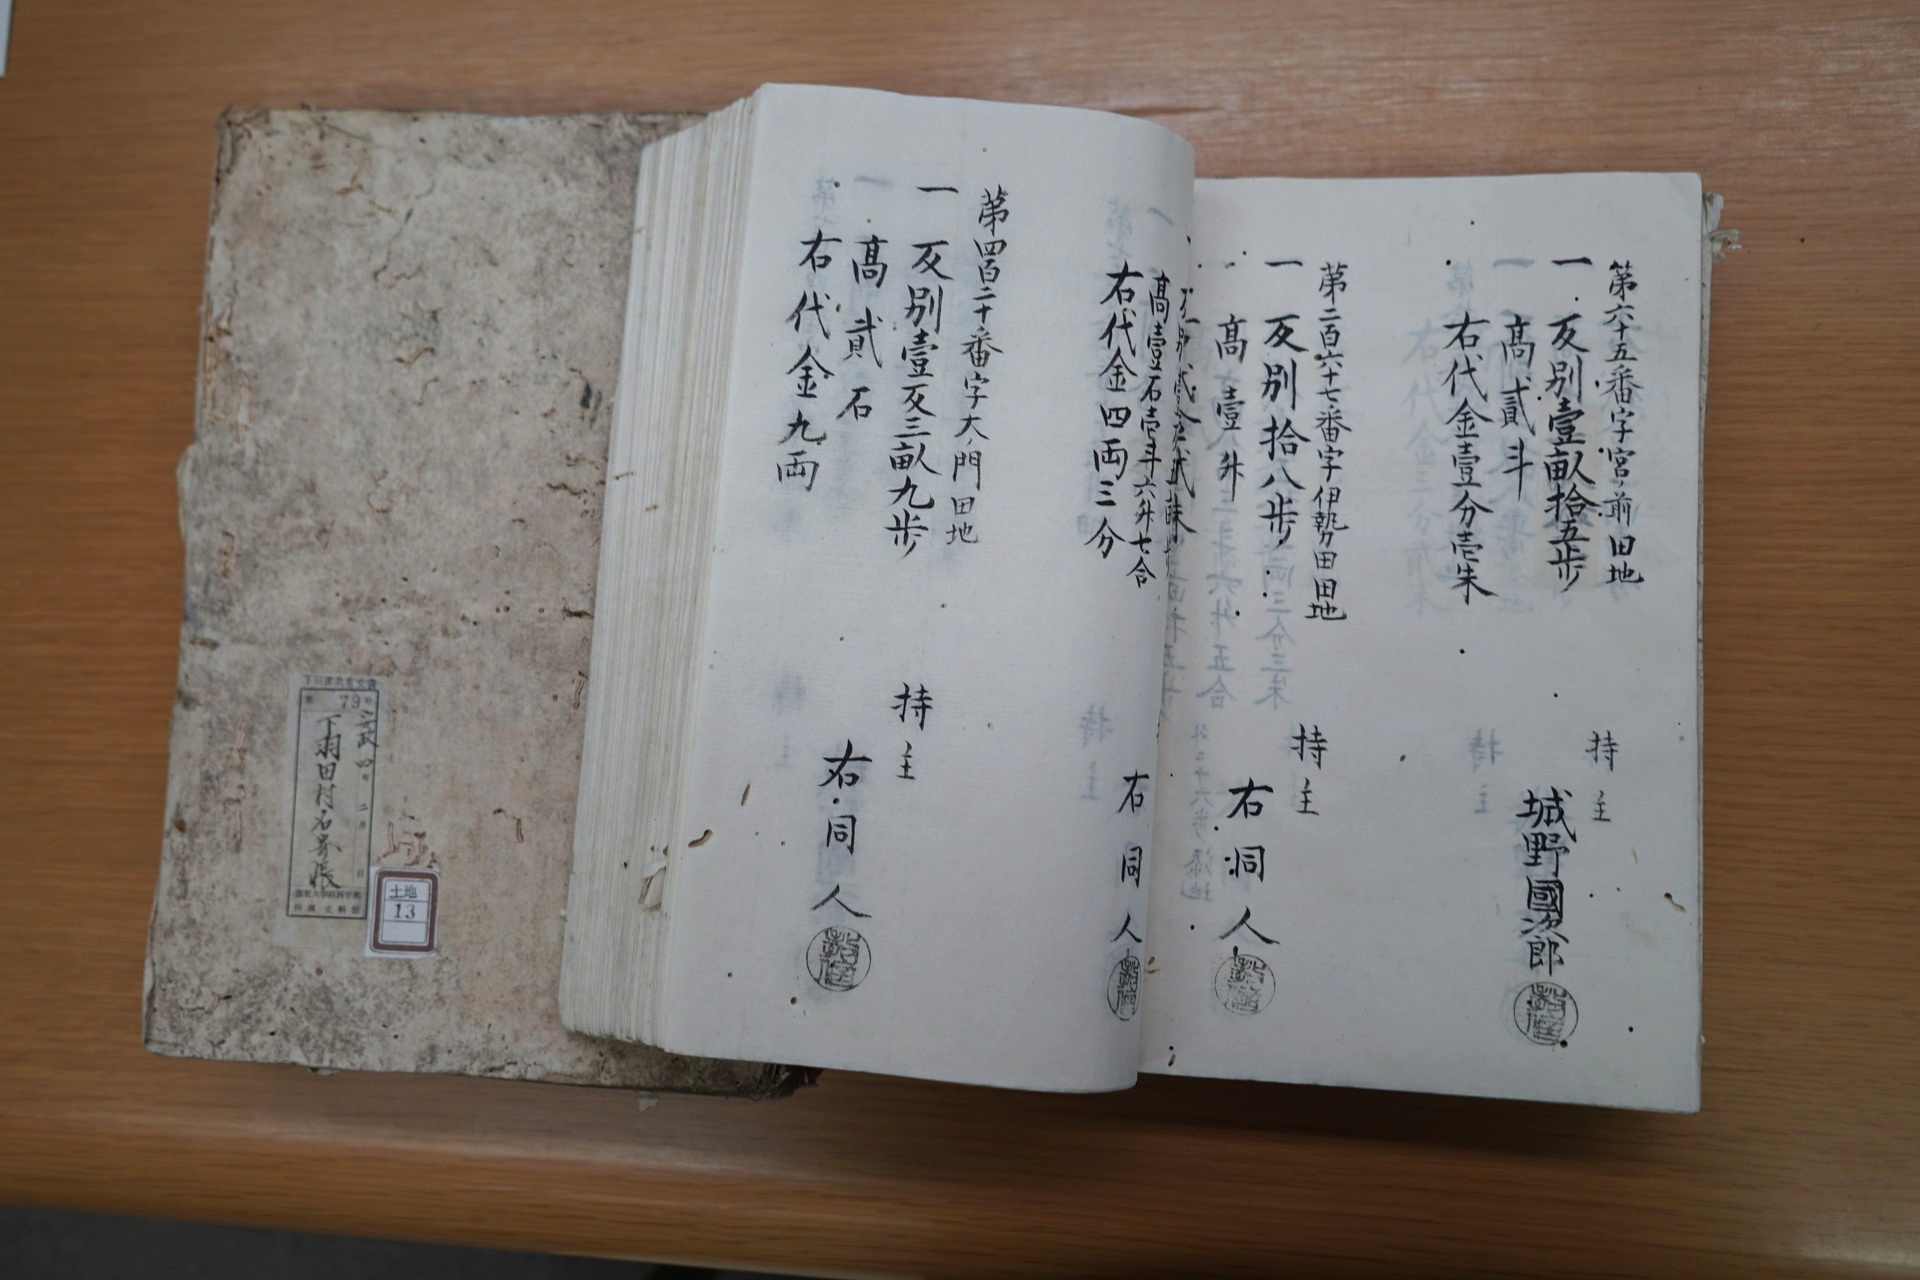 第六十五番字宮ノ前田地
一 反別壹畝拾五歩
高貳斗
右代金壹分壱朱
持主
城野國次郎
第二百六十七番字伊勢田田地
一 反別拾八歩
高壹八升
持主
右同人
高壹石壱斗六升七合
右代金四両三分
右同人
第四百二十番字大ノ門田地
一 反別壹反三畝九歩
高貳石
右代金九両
持主
右同人
79
下羽田村名寄帳
土地
13